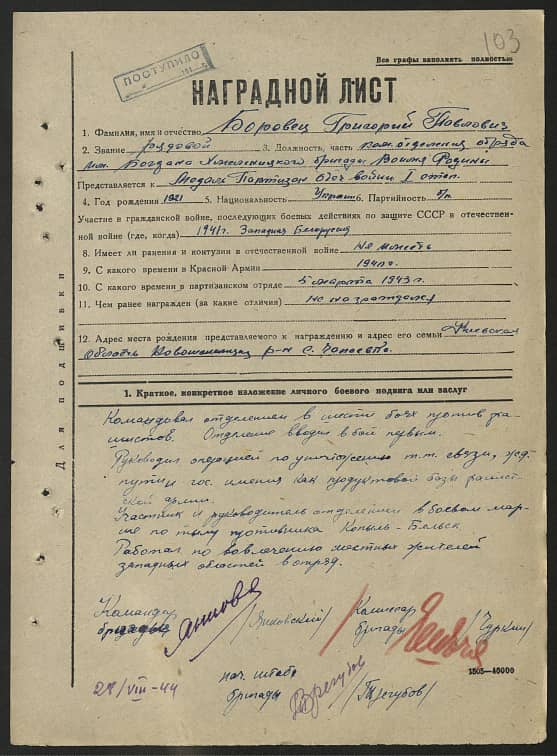 103
Все графы заполнять полностью
ПОСТУПИЛО
НАГРАДНОЙ ЛИСТ
1. Фамилия, имя и отчество Боровец Григорий Павлович
2. Звание рядовой 3. Должность, часть ком. отделения отряда
им. Богдана Хмельницкого бригады Вооля Родины
Представляется к Медали Партизан отеч войны I степ.
4. Год рождения 1921 5. Национальность Украин 6. Партийность б/п
Участие в гражданской войне, последующих боевых действиях по защите СССР в отечествен-
ной войне (где, когда) 1941г. Западная Белоруссия
8. Имеет ли ранения и контузии в отечественной войне
9. С какого времени в Красной Армии 1941г.
10. С какого времени в партизанском отряде 5 марта 1943 г.
11. Чем ранее награжден (за какие отличия) не награждался
12. Адрес места рождения представляемого к награждению и адрес его семьи Киевская
область р-н с. Чапаевка.
Для подшивки
1. Краткое, конкретное изложение личного боевого подвига или заслуг
Командовал отделением в шести боях против фа-
шистов. Отделение вводил в бой первым.
Руководил операцией по уничтожению т.т. связи, жд
пути и гос. имения как продуктовой базы фашист-
ской армии.
Участник и руководитель отделения в боевом мар-
ше по тылу противника Копыль-Бельск
Работал по вовлечению местных жителей
западных областей в отряд.
Командир
бригады /Янковский/
Комиссар
бригады /Чуркин/
1505—40000
28/VIII-44
нач. штаба
бригады /Трегубов/